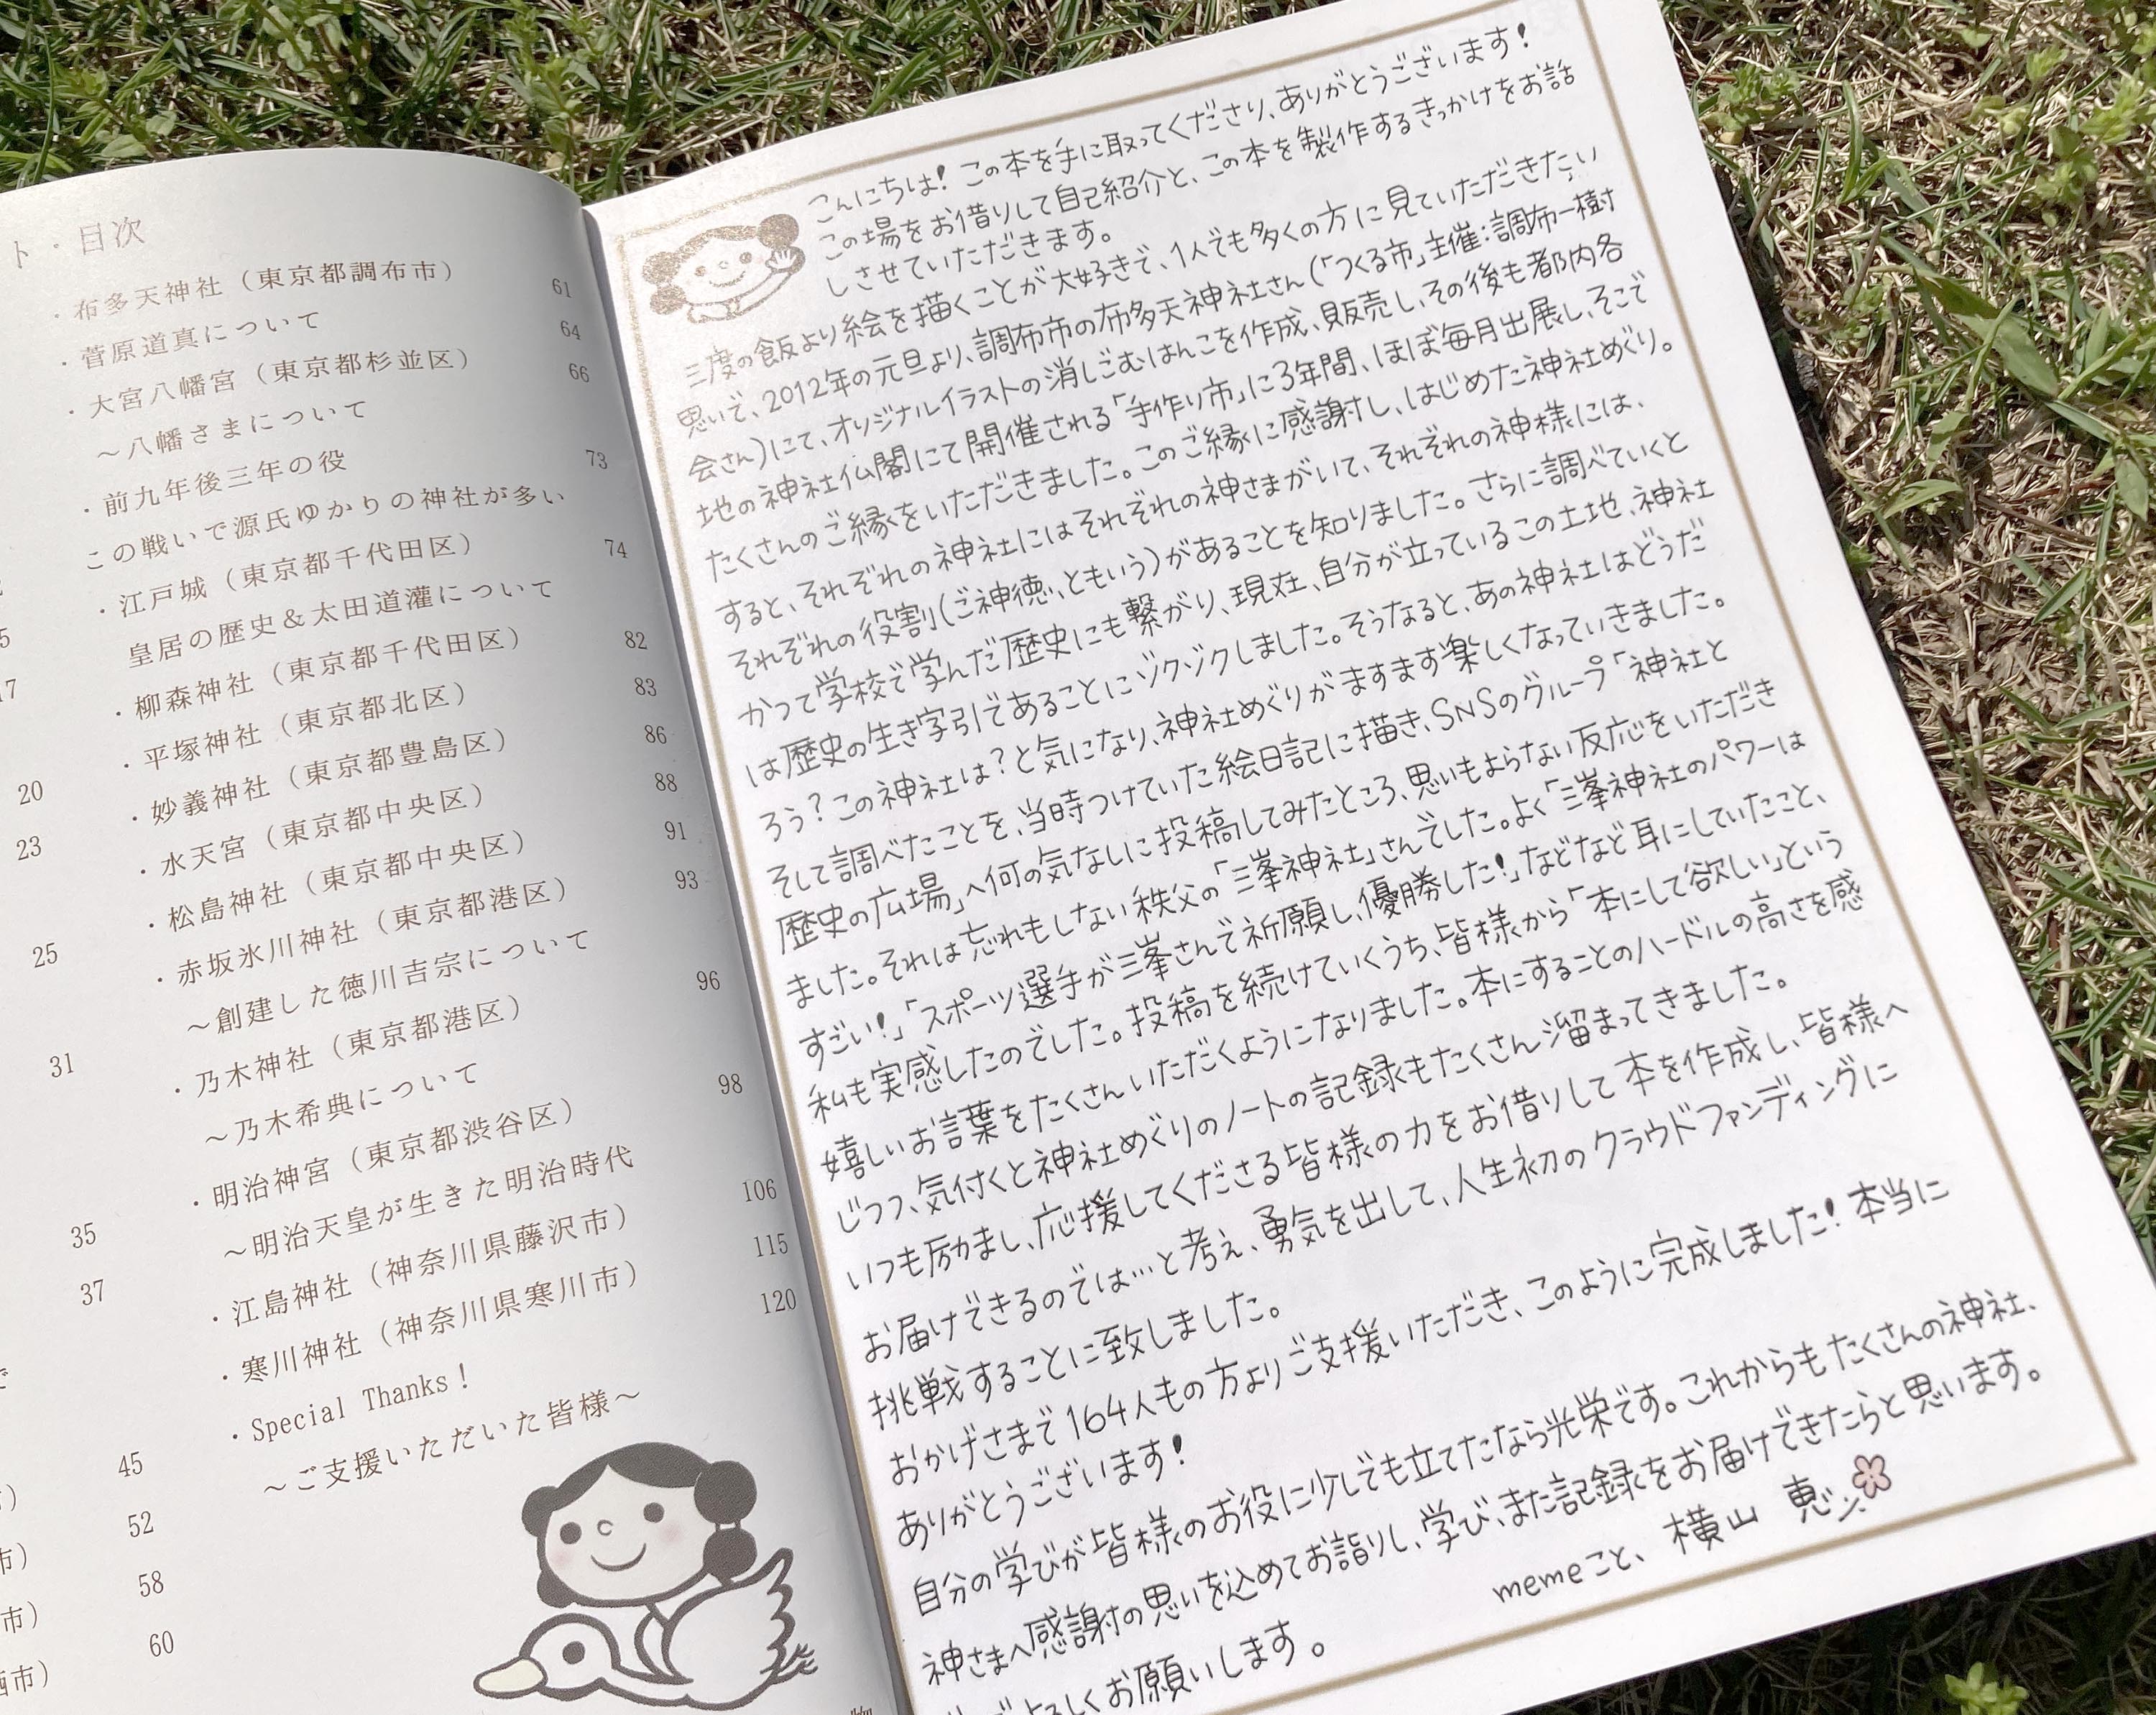 ト・目次
・布多天神社（東京都調布市） 61
・菅原道真について 64
・大宮八幡宮（東京都杉並区） 66
～八幡さまについて
・前九年後三年の役 73
この戦いで源氏ゆかりの神社が多い
・江戸城（東京都千代田区） 74
皇居の歴史＆太田道灌について
・柳森神社（東京都千代田区） 82
・平塚神社（東京都北区） 83
・妙義神社（東京都豊島区） 86
・水天宮（東京都中央区） 88
・松島神社（東京都中央区） 91
・赤坂氷川神社（東京都港区） 93
～創建した徳川吉宗について
・乃木神社（東京都港区） 96
～乃木希典について
・明治神宮（東京都渋谷区） 98
～明治天皇が生きた明治時代
・江島神社（神奈川県藤沢市） 106
・寒川神社（神奈川県寒川市） 115
・Special Thanks！ 120
～ご支援いただいた皆様～
5
17
20
23
25
31
35
37
45
52
市） 58
市） 60
市）
こんにちは！この本を手に取ってくださり、ありがとうございます！
この場をお借りして自己紹介と、この本を製作するきっかけをお話
しさせていただきます。
三度の飯より絵を描くことが大好きで、1人でも多くの方に見ていただきたい
思いで、2012年の元旦より、調布市の布多天神社さん(「つくる市」主催：調布一樹
会さん)にて、オリジナルイラストの消しごむはんこを作成、販売し、その後も都内各
地の神社仏閣にて開催される「手作り市」に3年間、ほぼ毎月出展し、そこで
たくさんのご縁をいただきました。このご縁に感謝し、はじめた神社めぐり。
すると、それぞれの神社にはそれぞれの神さまがいて、それぞれの神様には、
それぞれの役割(ご神徳、ともいう)があることを知りました。さらに調べていくと
かつて学校で学んだ歴史にも繋がり、現在、自分が立っているこの土地、神社
は歴史の生き字引であることにゾクゾクしました。そうなると、あの神社はどうだ
ろう？この神社は？と気になり、神社めぐりがますます楽しくなっていきました。
そして調べたことを、当時つけていた絵日記に描き、SNSのグループ「神社と
歴史の広場」へ何の気なしに投稿してみたところ、思いもよらない反応をいただき
ました。それは忘れもしない秩父の「三峯神社」さんでした。よく「三峯神社のパワーは
すごい！」「スポーツ選手が三峯さんで祈願し、優勝した！」などなど耳にしていたこと、
私も実感したのでした。投稿を続けていくうち、皆様から「本にして欲しい」という
嬉しいお言葉をたくさんいただくようになりました。本にすることのハードルの高さを感
じつつ、気付くと神社めぐりのノートの記録もたくさん溜まってきました。
いつも励まし、応援してくださる皆様の力をお借りして本を作成し、皆様へ
お届けできるのでは…と考え、勇気を出して、人生初のクラウドファンディングに
挑戦することに致しました。
おかげさまで164人もの方よりご支援いただき、このように完成しました！本当に
ありがとうございます！
自分の学びが皆様のお役に少しでも立てたなら光栄です。これからもたくさんの神社、
神さまへ感謝の思いを込めてお詣りし、学び、また記録をお届けできたらと思います。
よろしくお願いします。
memeこと、横山 恵